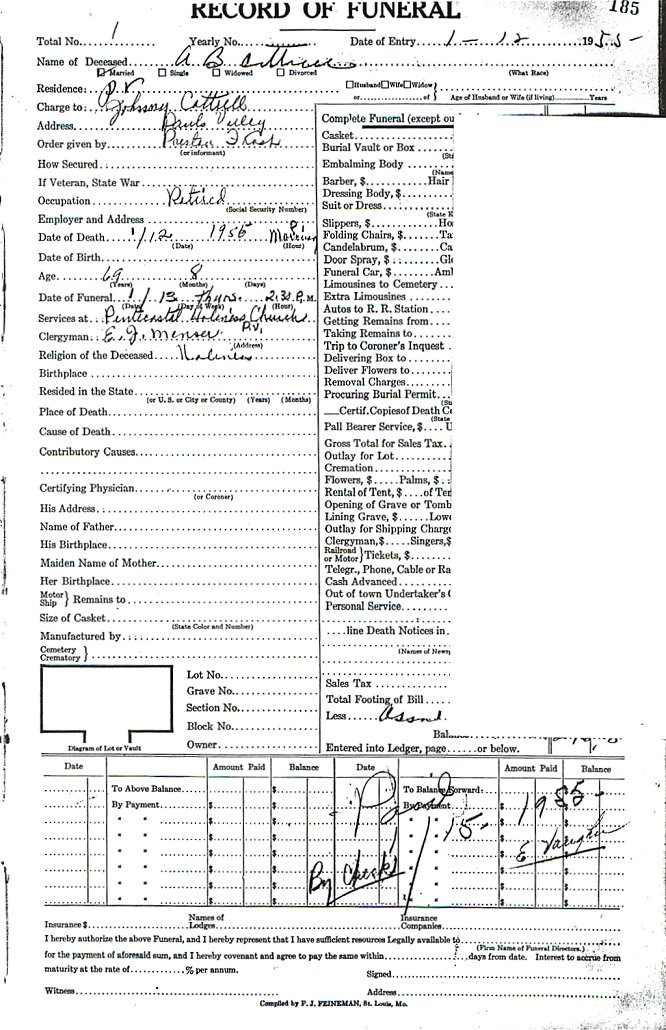 RECORD OF FUNERAL 185
Total No. 1 Yearly No. Date of Entry 1-12 1955-
Name of Deceased A. B. Cottrell
Married Single Widowed Divorced (What Race)
Residence: P.V. Husband Wife Widow
or of Age of Husband or Wife (if living) Years
Charge to: Johnny Cottrell
Address Pauls Valley
Order given by Preston
(or informant)
How Secured
If Veteran, State War
Occupation Retired
(Social Security Number)
Employer and Address
Date of Death 1/12 1955
(Date) (Hour)
Date of Birth
Age 69 8
(Years) (Months) (Days)
Date of Funeral 1/13 Thurs. 2:30 P.M.
(Date) (Day of Week) (Hour)
Services at Pentecostal Holiness Church
Clergyman: E. J. P.V.
(Address)
Religion of the Deceased Holiness
Birthplace
Resided in the State
(or U. S. or City or County) (Years) (Months)
Place of Death
Cause of Death
Contributory Causes
Certifying Physician
(or Coroner)
His Address
Name of Father
His Birthplace
Maiden Name of Mother
Her Birthplace
Motor Ship } Remains to
Size of Casket
(State Color and Number)
Manufactured by
Cemetery Crematory }
Lot No.
Grave No.
Section No.
Block No.
Owner
Diagram of Lot or Vault
Complete Funeral (except ou
Casket
Burial Vault or Box
(St
Embalming Body
(Name
Barber, $ Hair
Dressing Body, $
Suit or Dress
(State K
Slippers, $ Ho
Folding Chairs, $ Ta
Candelabrum, $ Ca
Door Spray, $ Glo
Funeral Car, $ Aml
Limousines to Cemetery
Extra Limousines
Autos to R. R. Station
Getting Remains from
Taking Remains to
Trip to Coroner's Inquest
Delivering Box to
Deliver Flowers to
Removal Charges
Procuring Burial Permit
(St
Certif. Copies of Death Ce
(State
Pall Bearer Service, $ U
Gross Total for Sales Tax
Outlay for Lot
Cremation
Flowers, $ Palms, $
Rental of Tent, $ of Ten
Opening of Grave or Tomb
Lining Grave, $ Lowe
Outlay for Shipping Charge
Clergyman, $ Singers, $
Railroad or Motor } Tickets, $
Telegr., Phone, Cable or Ra
Cash Advanced
Out of town Undertaker's C
Personal Service
line Death Notices in
(Names of News
Sales Tax
Total Footing of Bill
Less
Bala
Entered into Ledger, page or below.
Date Amount Paid Balance Date Amount Paid Balance
To Above Balance $ To Balance Forward: $
By Payment $ Paid By Payment $ 1955-
1/15-
E Vaughn
By Check
Insurance $ Names of Lodges Insurance Companies
I hereby authorize the above Funeral, and I hereby represent that I have sufficient resources Legally available to
(Firm Name of Funeral Directors.)
for the payment of aforesaid sum, and I hereby covenant and agree to pay the same within days from date. Interest to accrue from
maturity at the rate of % per annum. Signed
Witness Address
Compiled by F. J. FEINEMAN, St. Louis, Mo.